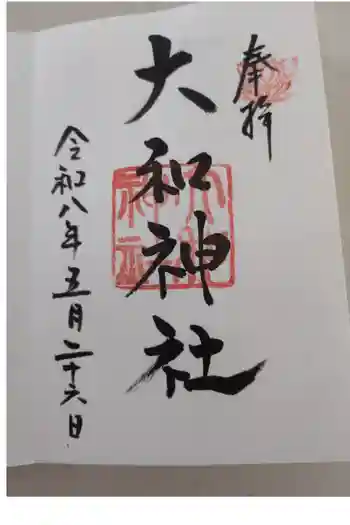 奉拝
大和神社
令和八年五月二十六日